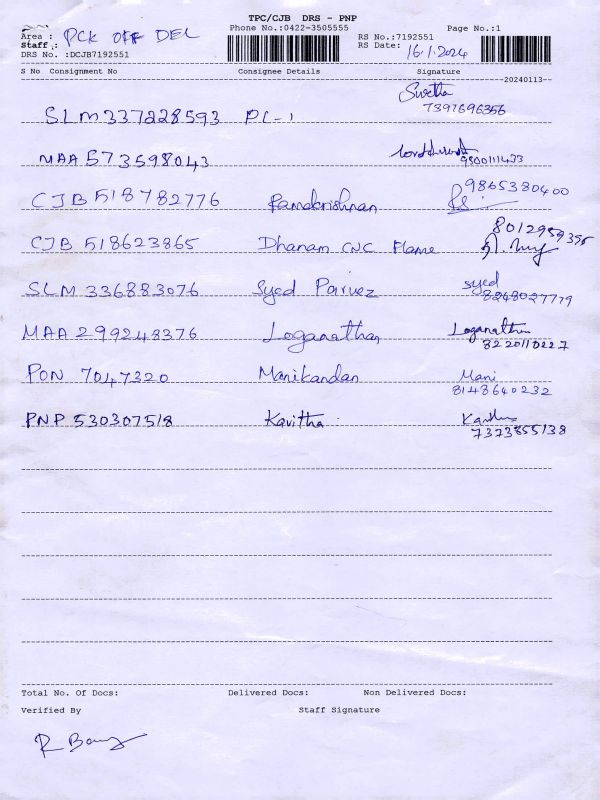 TPC/CJB DRS - PNP
Area : PCK OFF DEL Phone No.:0422-3505555 Page No.:1
Staff : RS No.:7192551
DRS No. :DCJB7192551 RS Date: 16.1.2024
S No Consignment No Consignee Details Signature
20240113
Swetha
SLM337228593 PC-1 7397696356
MAA 573598043 9500111433
CJB 518782776 Ramakrishnan 9865380400
CJB 518623865 Dhanam CNC Flame 8012959395
SLM 336883076 Syed Parvez syed
8248027779
MAA 299248376 Loganathan Loganathan
8220110227
PON 7047320 Manikandan Mani
8148640232
PNP 530307518 Kavitha
7373855138
Total No. Of Docs: Delivered Docs: Non Delivered Docs:
Verified By Staff Signature